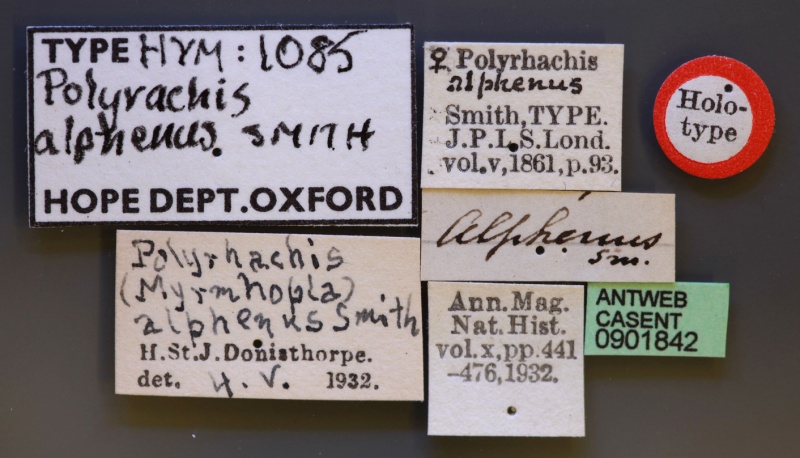 TYPE HYM: 1085
Polyrachis
alphenus. SMITH
HOPE DEPT. OXFORD
♀ Polyrhachis
alphenus
Smith, TYPE.
J.P.L.S. Lond.
vol. v, 1861, p. 93.
Holo-
type
Alphenus
Sm.
Polyrhachis
(Myrmhopla)
alphenus Smith
H. St. J. Donisthorpe.
det. 4. V. 1932.
Ann. Mag.
Nat. Hist.
vol. x, pp. 441
-476, 1932.
ANTWEB
CASENT
0901842